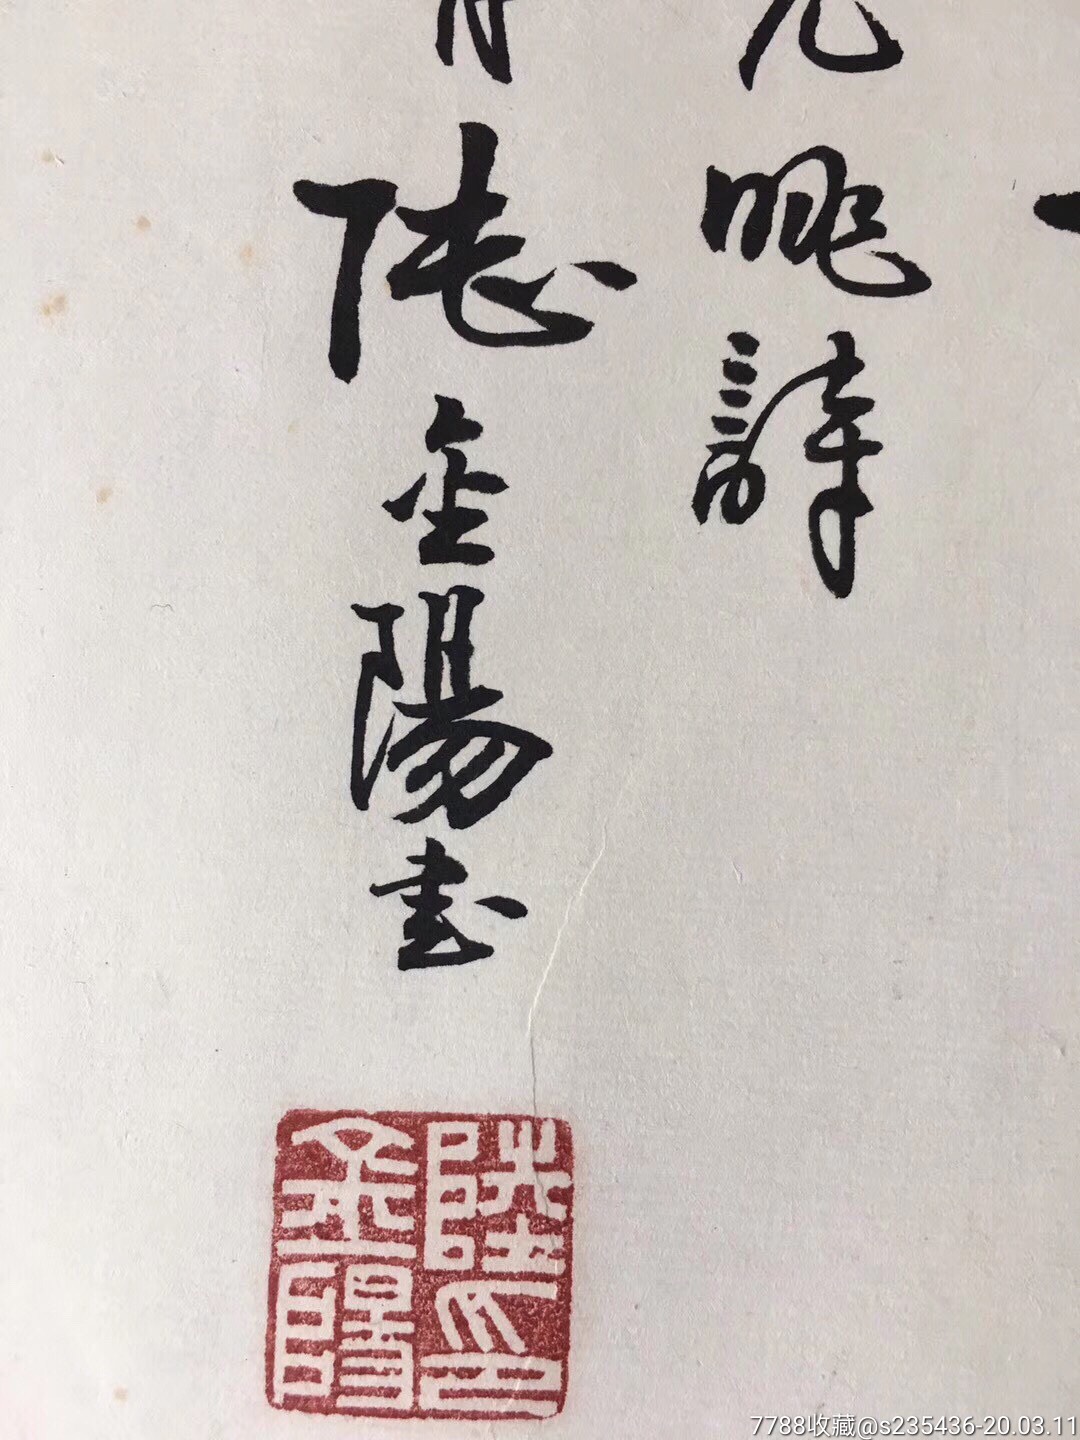 眺詩
陸金陽書
陸印
金陽
7788收藏@s235436-20.03.11